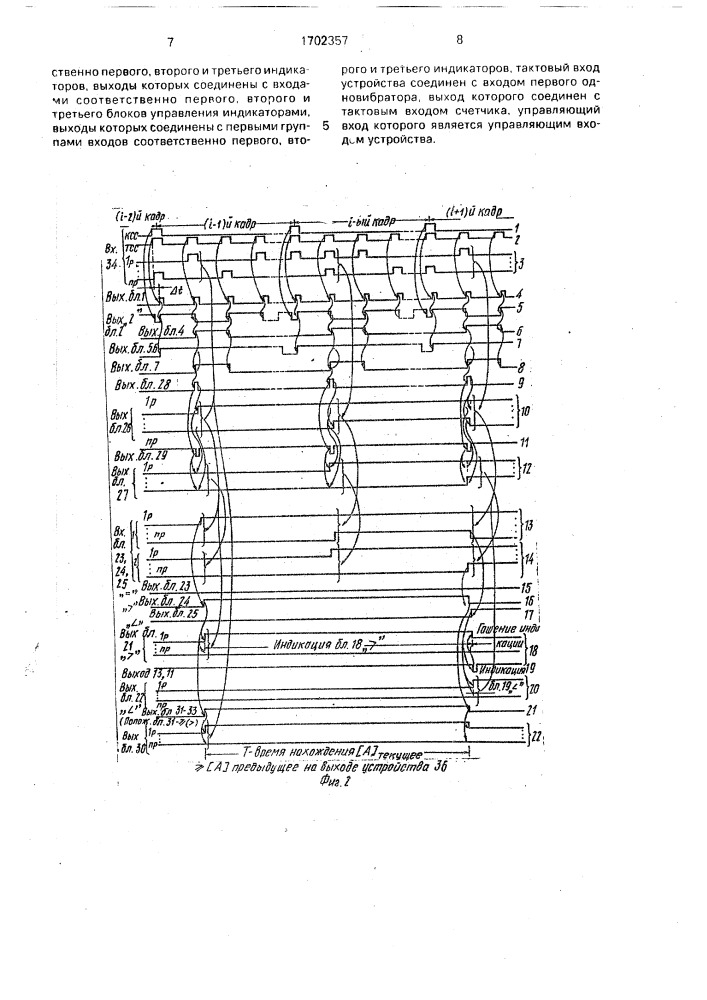 7
1702357
8
ственно первого, второго и третьего индика-
торов, выходы которых соединены с входа-
ми соответственно первого, второго и
третьего блоков управления индикаторами,
выходы которых соединены с первыми груп-
пами входов соответственно первого, вто-
5
рого и третьего индикаторов, тактовый вход
устройства соединен с входом первого од-
новибратора, выход которого соединен с
тактовым входом счетчика, управляющий
вход которого является управляющим вхо-
дом устройства.
(i-2)й кадр
(i-1)й кадр
i-ый кадр
(i+1)й кадр
КСС
1
Вх.
ТСС
2
34
1р
3
пр
Δt
Вых. бл.1
4
Вых. 2"
5
бл. 2"
Вых. бл. 4
6
Вых. бл. 5в
7
Вых. бл. 7
8
Вых. бл. 28
9
1р
10
Вых
бл. 26
пр
11
Вых. бл. 29
Вых
1р
12
бл.
27
пр
1р
13
Вх.
бл.
пр
23,
1р
14
24,
пр
25
Вых. бл. 23
15
„="
Вых. бл. 24
16
„>"
Вых. бл. 25
17
„<"
Вых бл.
1р
Индикация бл. 18 „>"
Гашение инди
кации
18
21
„>"
пр
Выход 13, 11
Индикация
19
Вых.
1р
бл. 19 „<"
20
бл. 22
пр
„<"
Вых. бл 31-33
21
(Полож. бл. 31-≥(>)
Вых
1р
бл. 30
пр
22
Т-время нахождения [А] текущее
≥ [А] предыдущее на выходе устройства 36
Фиг. 2